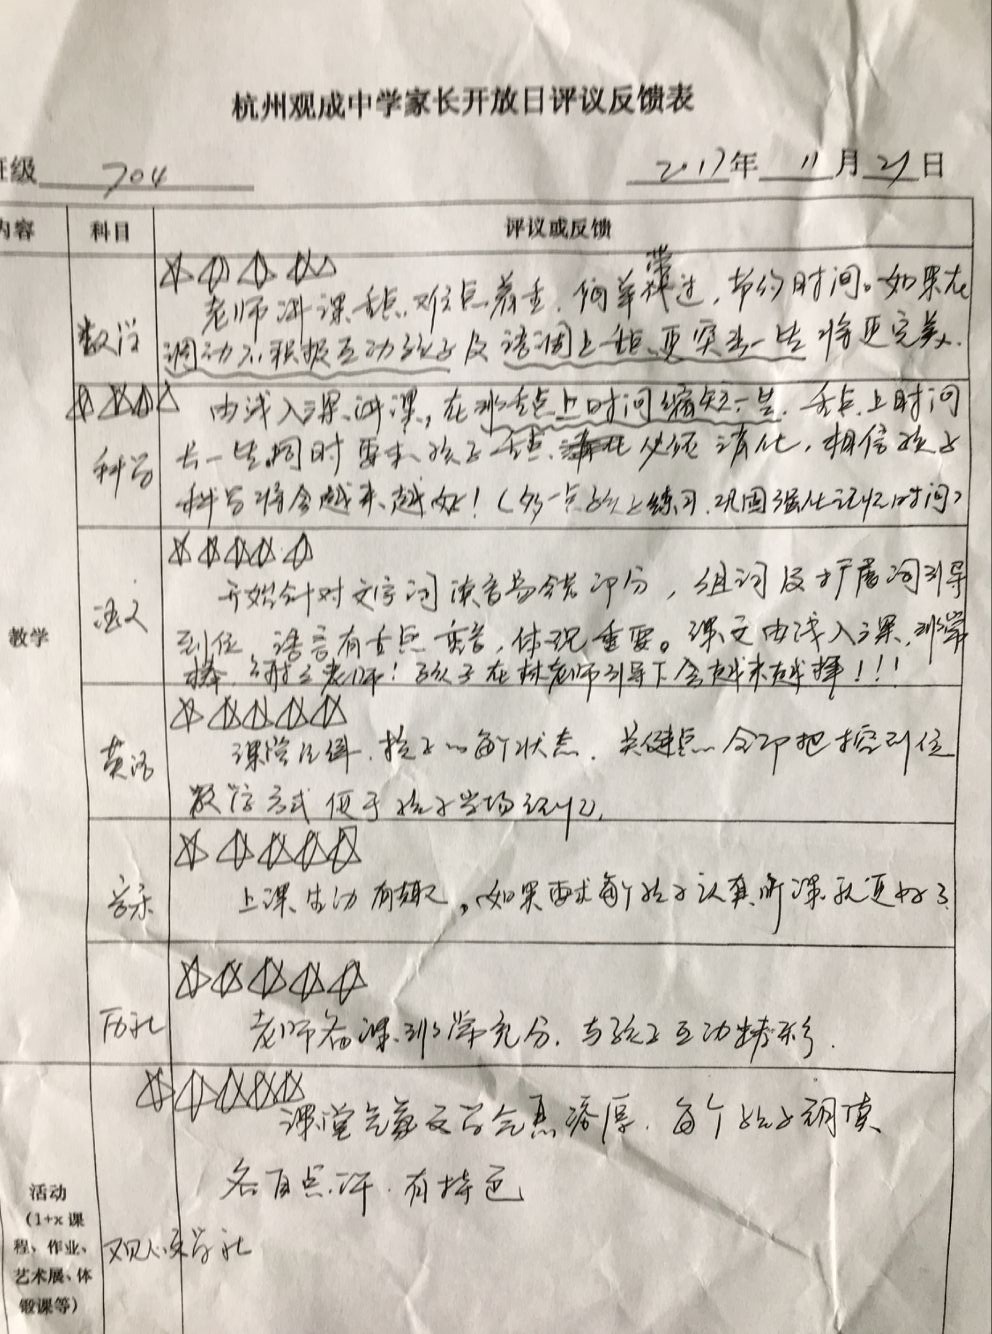 杭州观成中学家长开放日评议反馈表
班级 704 2017年 11月29日
内容 科目 评议或反馈
教学
数学
老师讲课重点、难点着重,简单带过,节约时间。如果在
调动不积极互动孩子及语调上重点更突出一些将更完美.
科学
由浅入深讲课,在非重点上时间缩短一些.重点上时间
长一些,同时要求孩子重点必须消化,相信孩子
科学将会越来越好!(多一点孩子练习.巩固强化记忆时间)
语文
开始针对文字词读音易错评分,组词及扩展词引导
到位,语言有重点,体现重要。课文由浅入深,非常
棒, 老师!孩子在林老师引导下会越来越棒!!!
英语
课堂 孩子 每个状态.关键点 把控到位
教学方式便于孩子当场记忆.
音乐
上课生动有趣,如果要求每个孩子认真听课就更好了.
历社
老师备课非常充分.与孩子互动精彩.
活动
(1+x 课
程、作业、
艺术展、体
锻课等)
观 文学社
课堂 文学气息浓厚.每个孩子朗读
各自点评.有特色